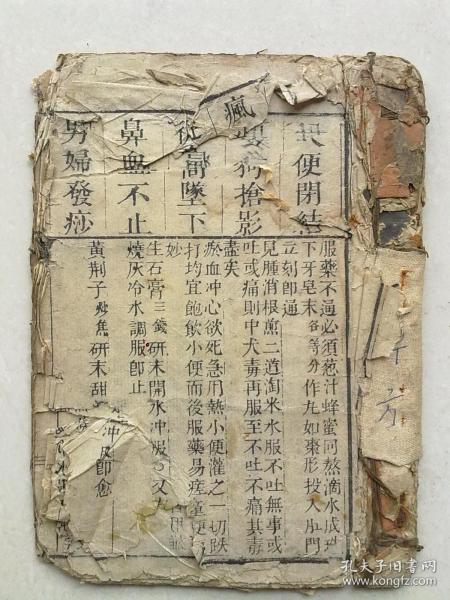 便閉結
服藥不通必須葱汁蜂蜜同熬滴水成珠
下牙皂末各等分作丸如棗形投入肛門
立刻即通
瘋
狗搶影
見腫消根煎二道淘米水服不吐無事或
吐或痛則中犬毒再服至不吐不痛其毒
盡矣
從高墜下
瘀血冲心欲死急用熱小便灌之一切跌
打均宜飽飲小便而後服藥易痊童便
妙
鼻血不止
生石膏三錢研末開水冲服又
燒灰冷水調服即止
男婦發痧
黃荆子炒焦研末甜
冲服即愈
方
孔夫子旧书网
www.kongfz.com